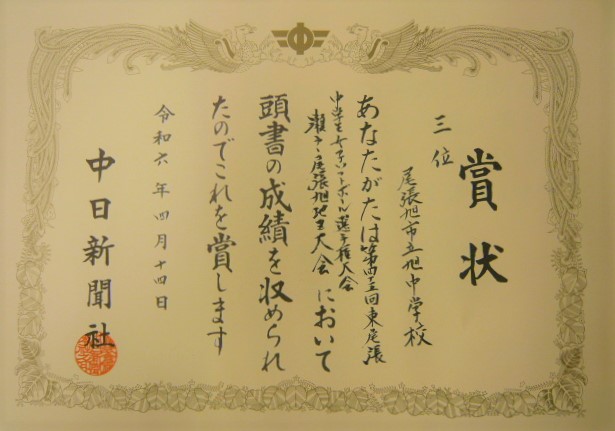 賞状
三位
尾張旭市立旭中学校
あなたがたは第四五回東尾張
中学生女子ソフトボール選手権大会
瀬戸・尾張旭地区大会において
頭書の成績を収められ
たのでこれを賞します
令和六年四月十四日
中日新聞社